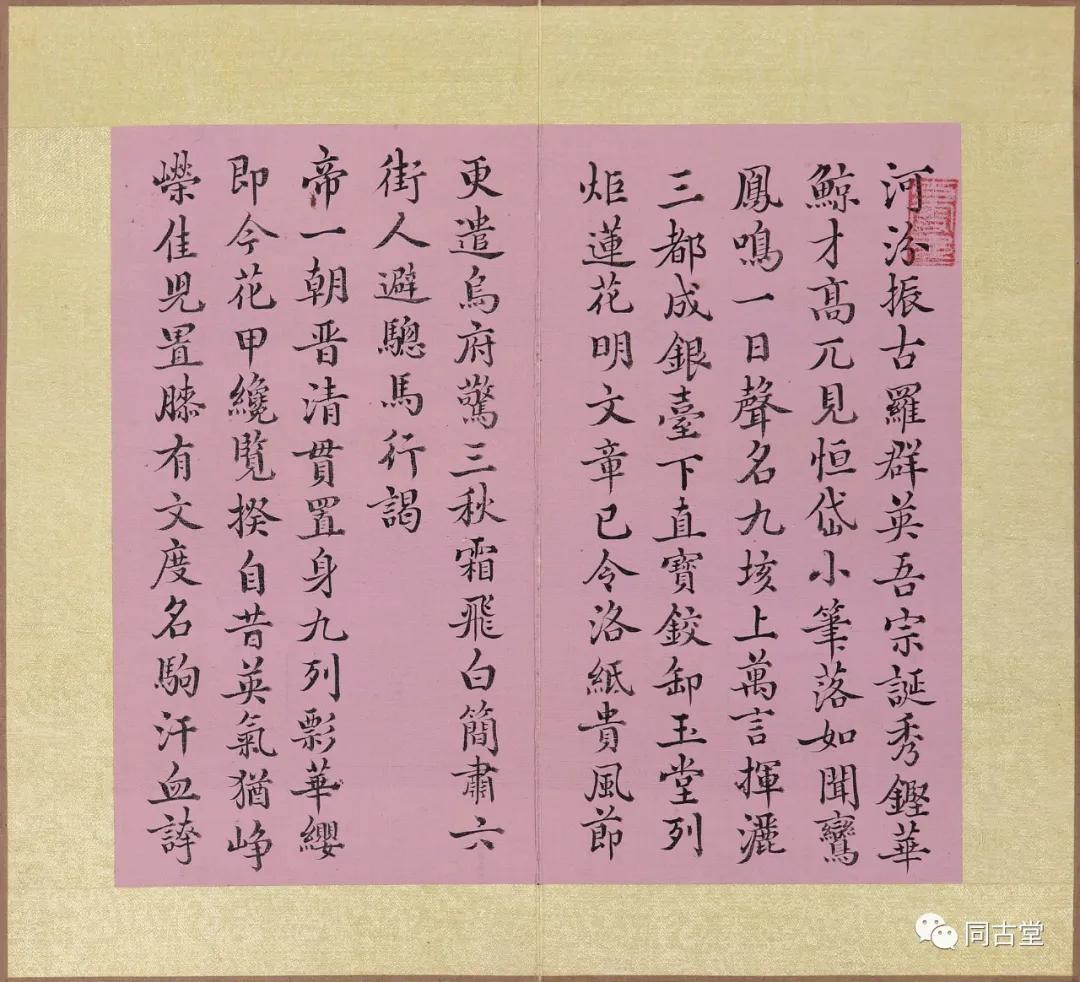 河汾振古羅群英吾宗誕秀鏗華
鯨才高兀見恒岱小筆落如聞鸞
鳳鳴一日聲名九垓上萬言揮灑
三都成銀臺下直寶鉸卸玉堂列
炬蓮花明文章已令洛紙貴風節
更遣烏府驚三秋霜飛白簡肅六
街人避驄馬行謁
帝一朝晋清貫置身九列影華纓
即今花甲纔覽揆自昔英氣猶崢
嶸佳児置膝有文度名駒汗血誇
同古堂